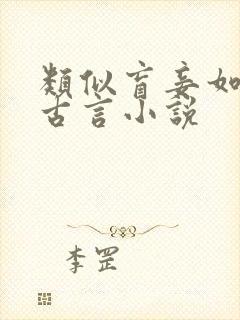 類似盲妾如
古言小說
李罡